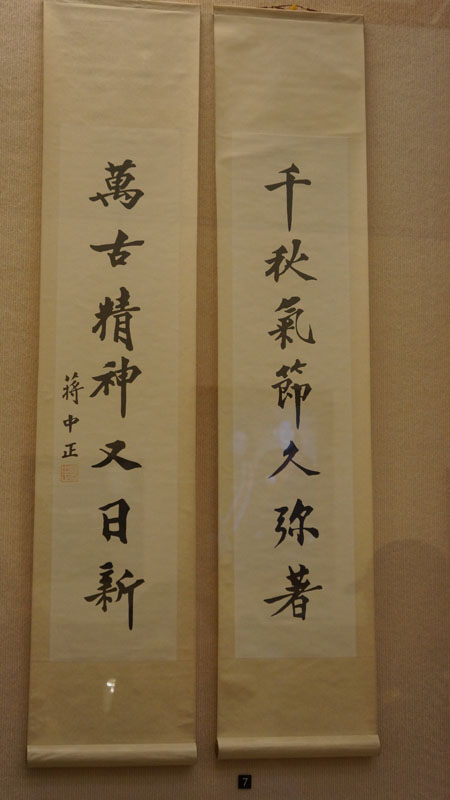 千秋氣節久弥著
萬古精神又日新
蔣中正
7